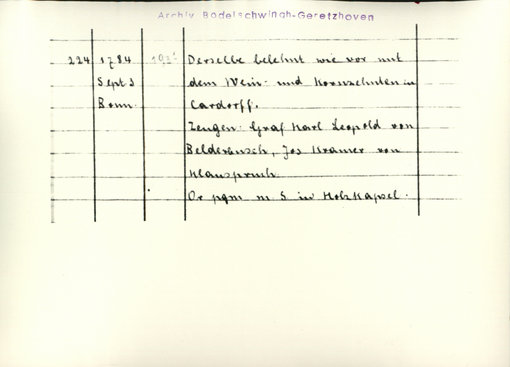 Archiv Bodelschwingh-Geretzhoven
224 1784 Derselbe belehnt wie vor mit
Sept 3 dem Wein- und Kornzehnten in
Bonn. Cardorff.
Zeugen: Graf Karl Leopold von
Belderbusch, Jos Kramer von
Klauspruch
Or pgm m S in Holzkapsel.